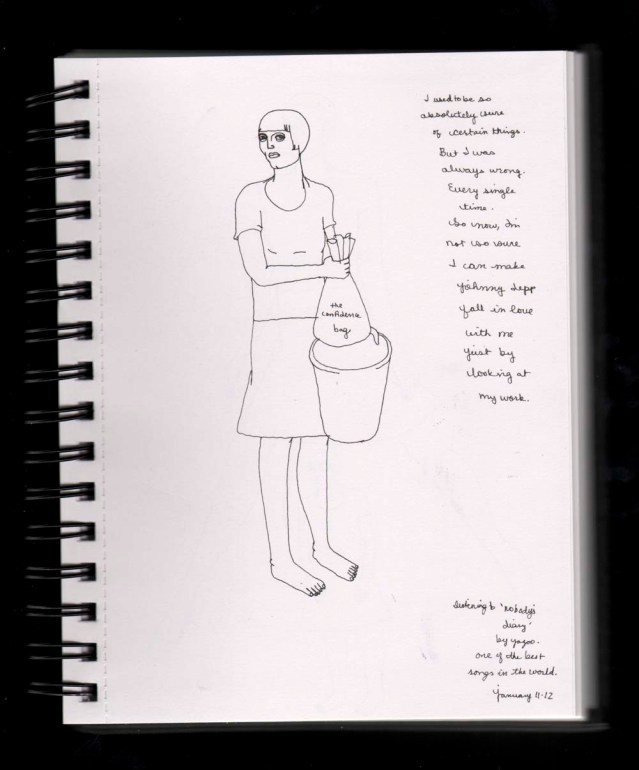 I used to be so
absolutely sure
of certain things.
But I was
always wrong.
Every single
time.
So now, I'm
not so sure
I can make
Johnny Depp
fall in love
with me
just by
looking at
my work.
the
confidence
bag
listening to 'nobody's
diary'
by yazoo.
one of the best
songs in the world.
January 11.12